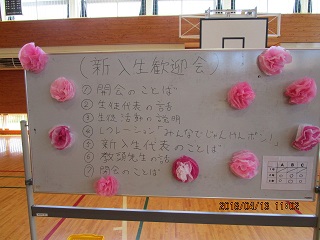 (新入生歓迎会)
① 開会のことば
② 生徒代表の話
③ 生徒活動の説明
④ レクリレーション「みんなでじゃんけんポン」
⑤ 新入生代表のことば
⑥ 教頭先生の話
⑦ 閉会のことば
A B C
2018/04/13 11:02